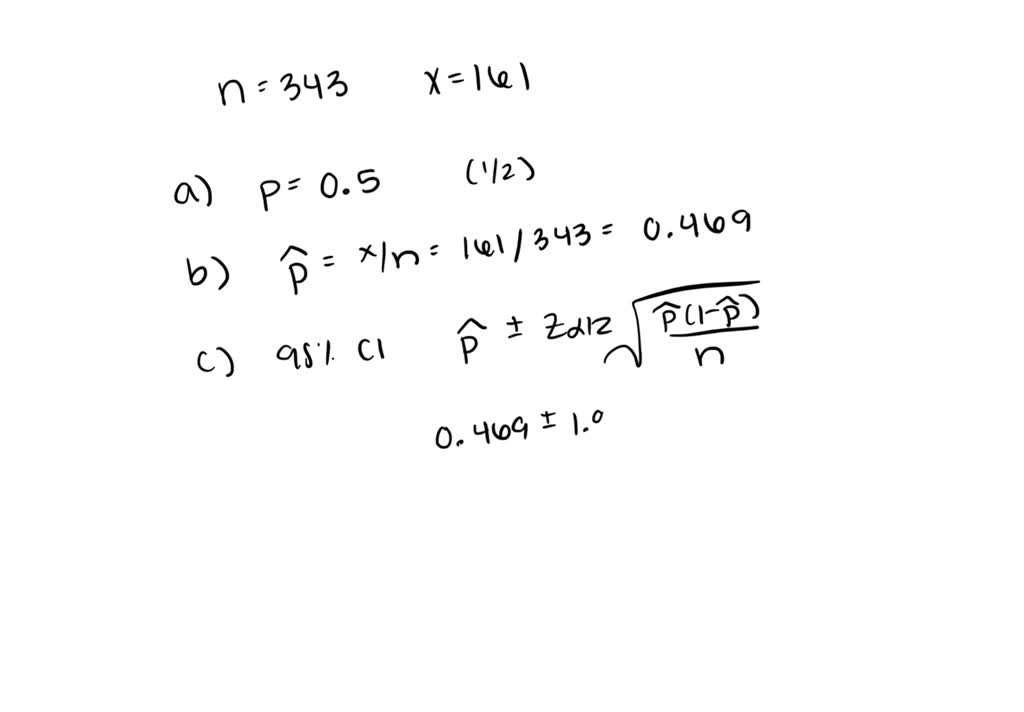 n = 343 x = 161
a) p = 0.5 (1/2)
b) p̂ = x/n = 161/343 = 0.469
c) 95% CI p̂ ± Zα/2 √(p̂(1-p̂)/n)
0.469 ± 1.9